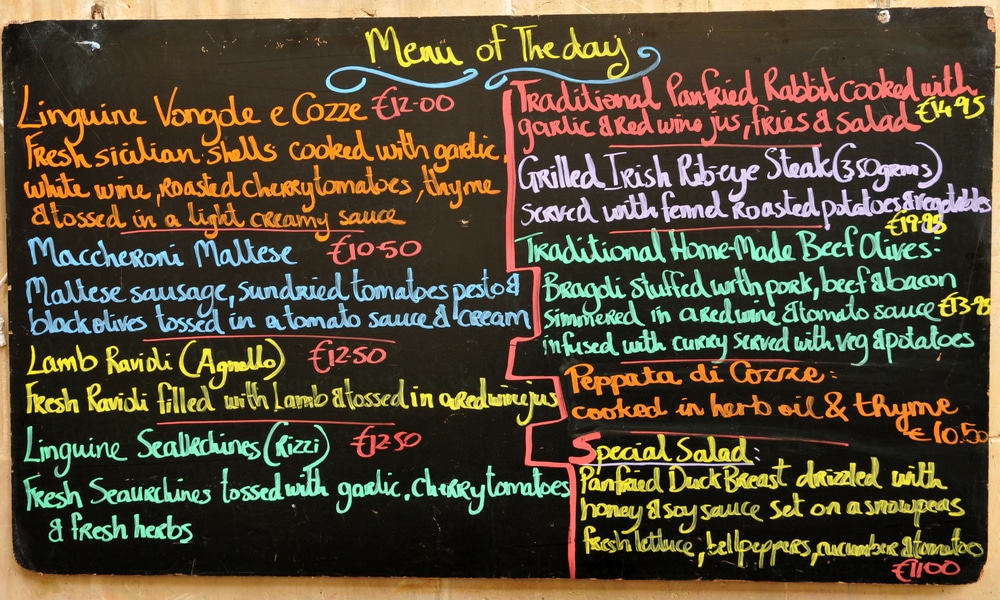 Menu of The day
Linguine Vongole e Cozze €12.00
Fresh sicilian shells cooked with garlic,
white wine, roasted cherrytomatoes, thyme
& tossed in a light creamy sauce
Maccheroni Maltese €10.50
Maltese sausage, sundried tomatoes pesto &
black olives tossed in a tomato sauce & cream
Lamb Ravioli (Agnello) €12.50
Fresh Ravioli filled with Lamb & tossed in a red wine jus
Linguine Seaurchines (Rizzi) €12.50
Fresh Seaurchines tossed with garlic, cherrytomatoes
& fresh herbs
Traditional Panfried Rabbit cooked with
garlic & Red wine jus, fries & salad €14.95
Grilled Irish Rib-eye Steak (350grms)
served with fennel roasted potatoes & vegetables
€19.95
Traditional Home-Made Beef Olives:
Bragoli stuffed with pork, beef & bacon
simmered in a red wine & tomato sauce €13.95
infused with curry served with veg & potatoes
Peppata di Cozze:
cooked in herb oil & thyme
€10.50
Special Salad:
Panfried Duck Breast drizzled with
honey & soy sauce set on a snowpeas
fresh lettuce, bellpeppers, cucumber & tomatoes
€11.00